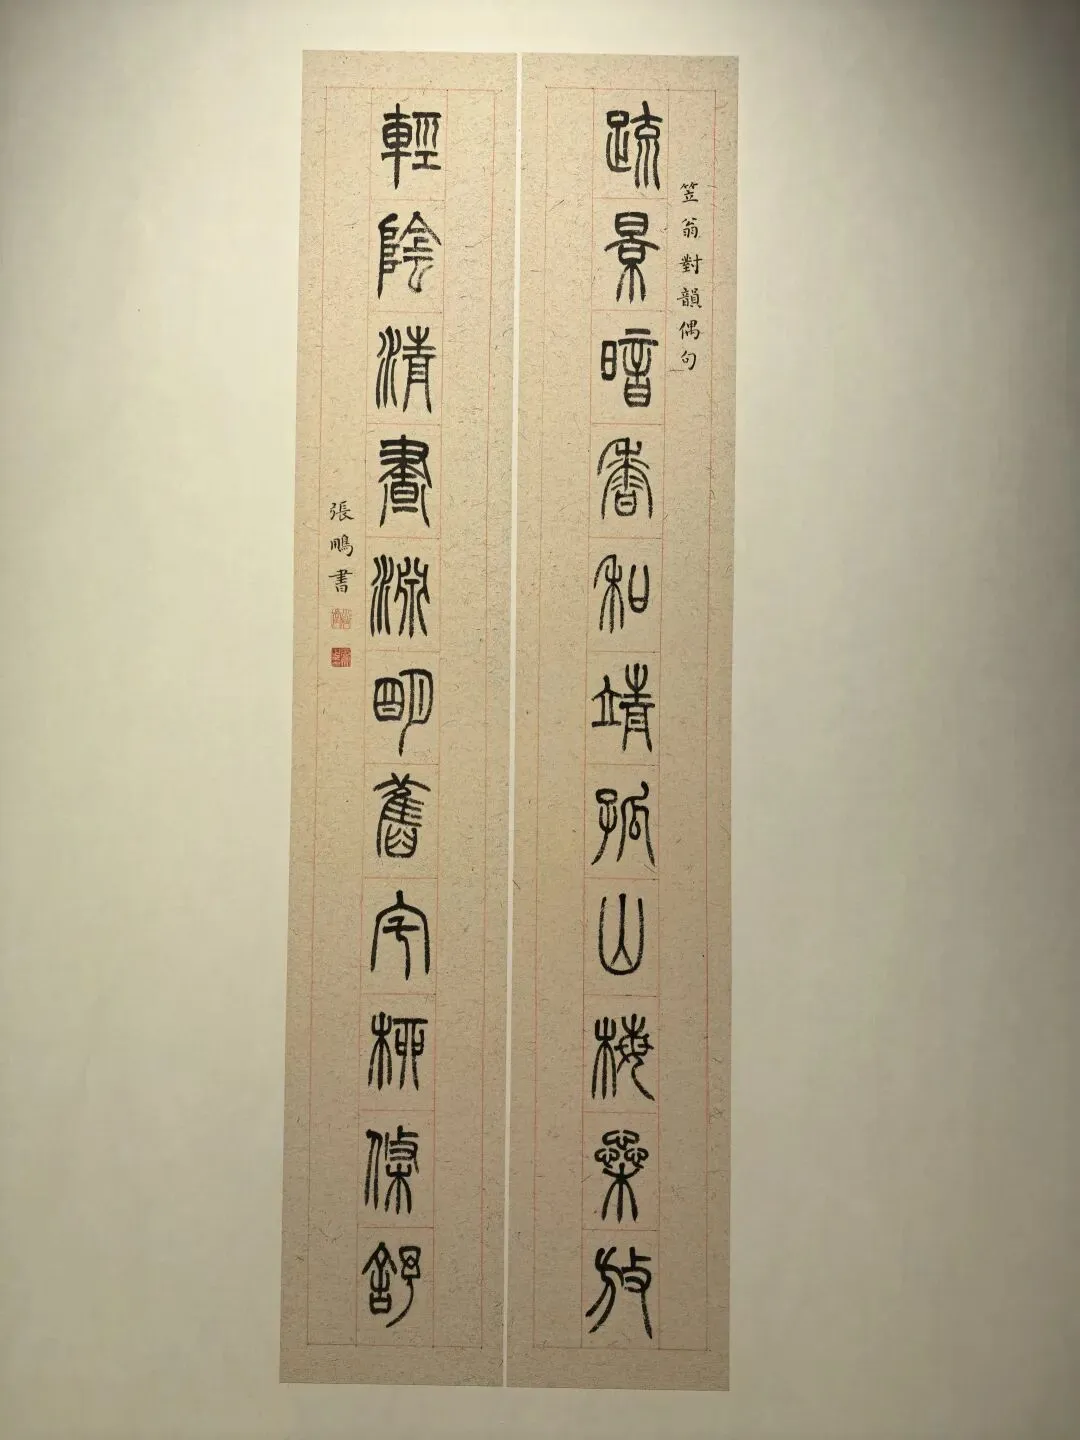 笠翁對韻偶句
疏景暗香和靖孤山梅橤放
輕陰清晝淵明舊宅柳條舒
張鵬書